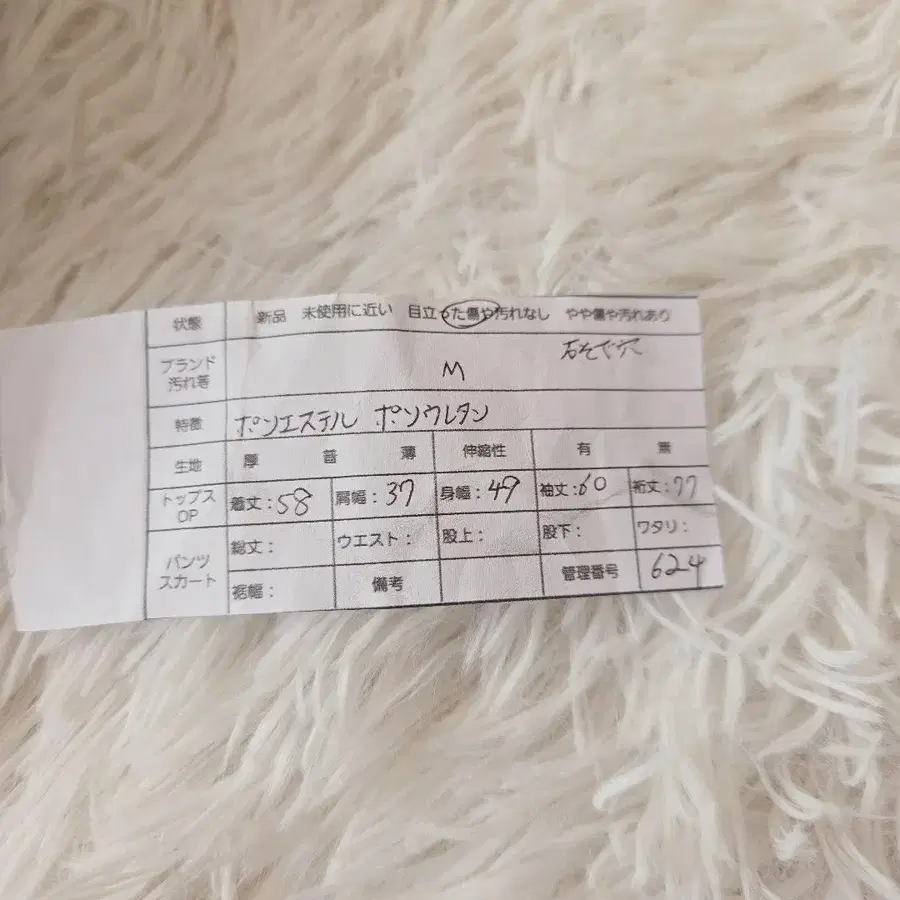 状態 新品 未使用に近い 目立った傷や汚れなし やや傷や汚れあり
ブランド 汚れ等 M 右そで穴
特徴 ポンエステル ポンウレタン
生地 厚 普 薄 伸縮性 有 無
トップス OP 着丈:58 肩幅:37 身幅:49 袖丈:60 裄丈:77
パンツ スカート 総丈: ウエスト: 股上: 股下: ワタリ:
裾幅: 備考 管理番号 624